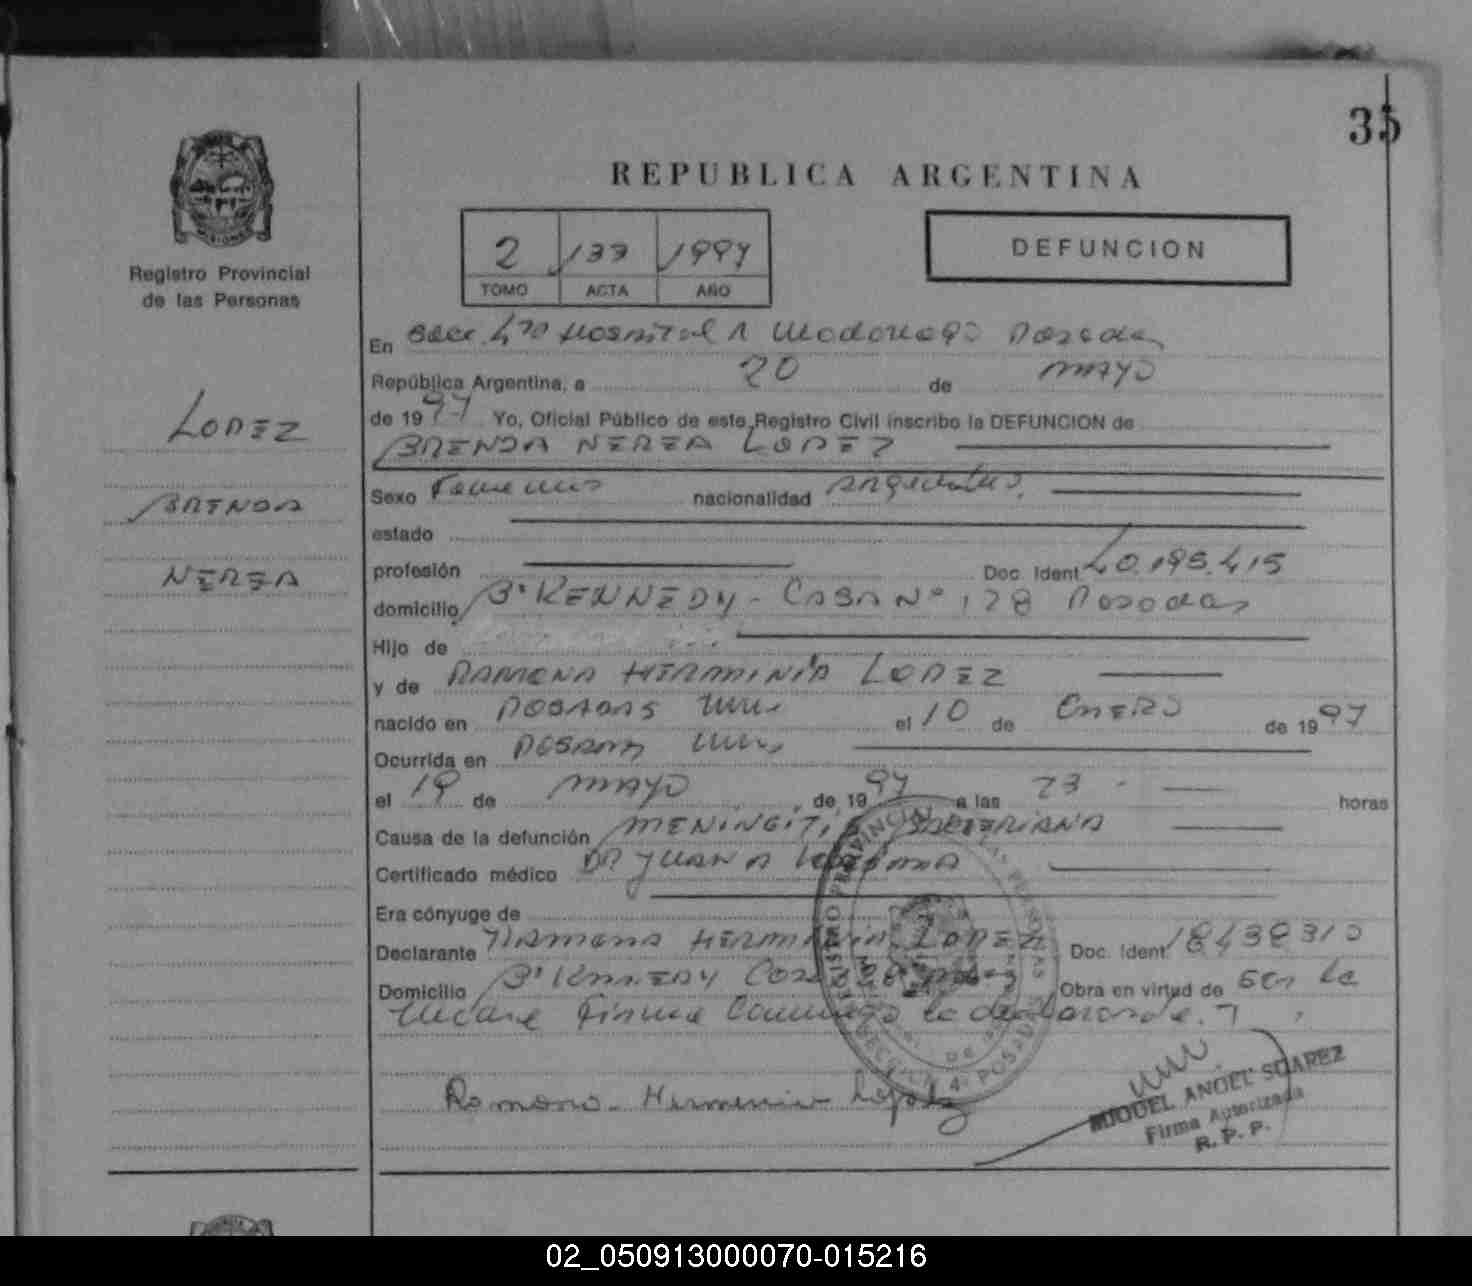 35
REPUBLICA ARGENTINA
MISIONES
Registro Provincial
de las Personas
2 133 1997
TOMO ACTA AÑO
DEFUNCION
LOPEZ
BRENDA
NEREA
En Secc. 4ta Hospital R Madariaga Posadas
República Argentina, a 20 de MAYO
de 1997 Yo, Oficial Público de este Registro Civil inscribo la DEFUNCION de
BRENDA NEREA LOPEZ
Sexo Femenino nacionalidad argentina
estado
profesión Doc. Ident. 40.195.415
domicilio Bº KENNEDY - CASA Nº 128 Posadas
Hijo de
y de RAMONA HERMINIA LOPEZ
nacido en POSADAS Mnes el 10 de ENERO de 1997
Ocurrida en POSADAS Mnes
el 19 de MAYO de 1997 a las 23 - horas
Causa de la defunción MENINGITIS BACTERIANA
Certificado médico DR JUAN A
Era cónyuge de
Declarante RAMONA HERMINIA LOPEZ Doc. Ident. 18438310
Domicilio Bº KENNEDY Casa Obra en virtud de ser la
Madre firma conmigo la declarante.
REGISTRO PROVINCIAL DE LAS PERSONAS
SECCION 4ª POSADAS
Ramona Herminia López
MIGUEL ANGEL SUAREZ
Firma Autorizada
R. P. P.
02_050913000070-015216